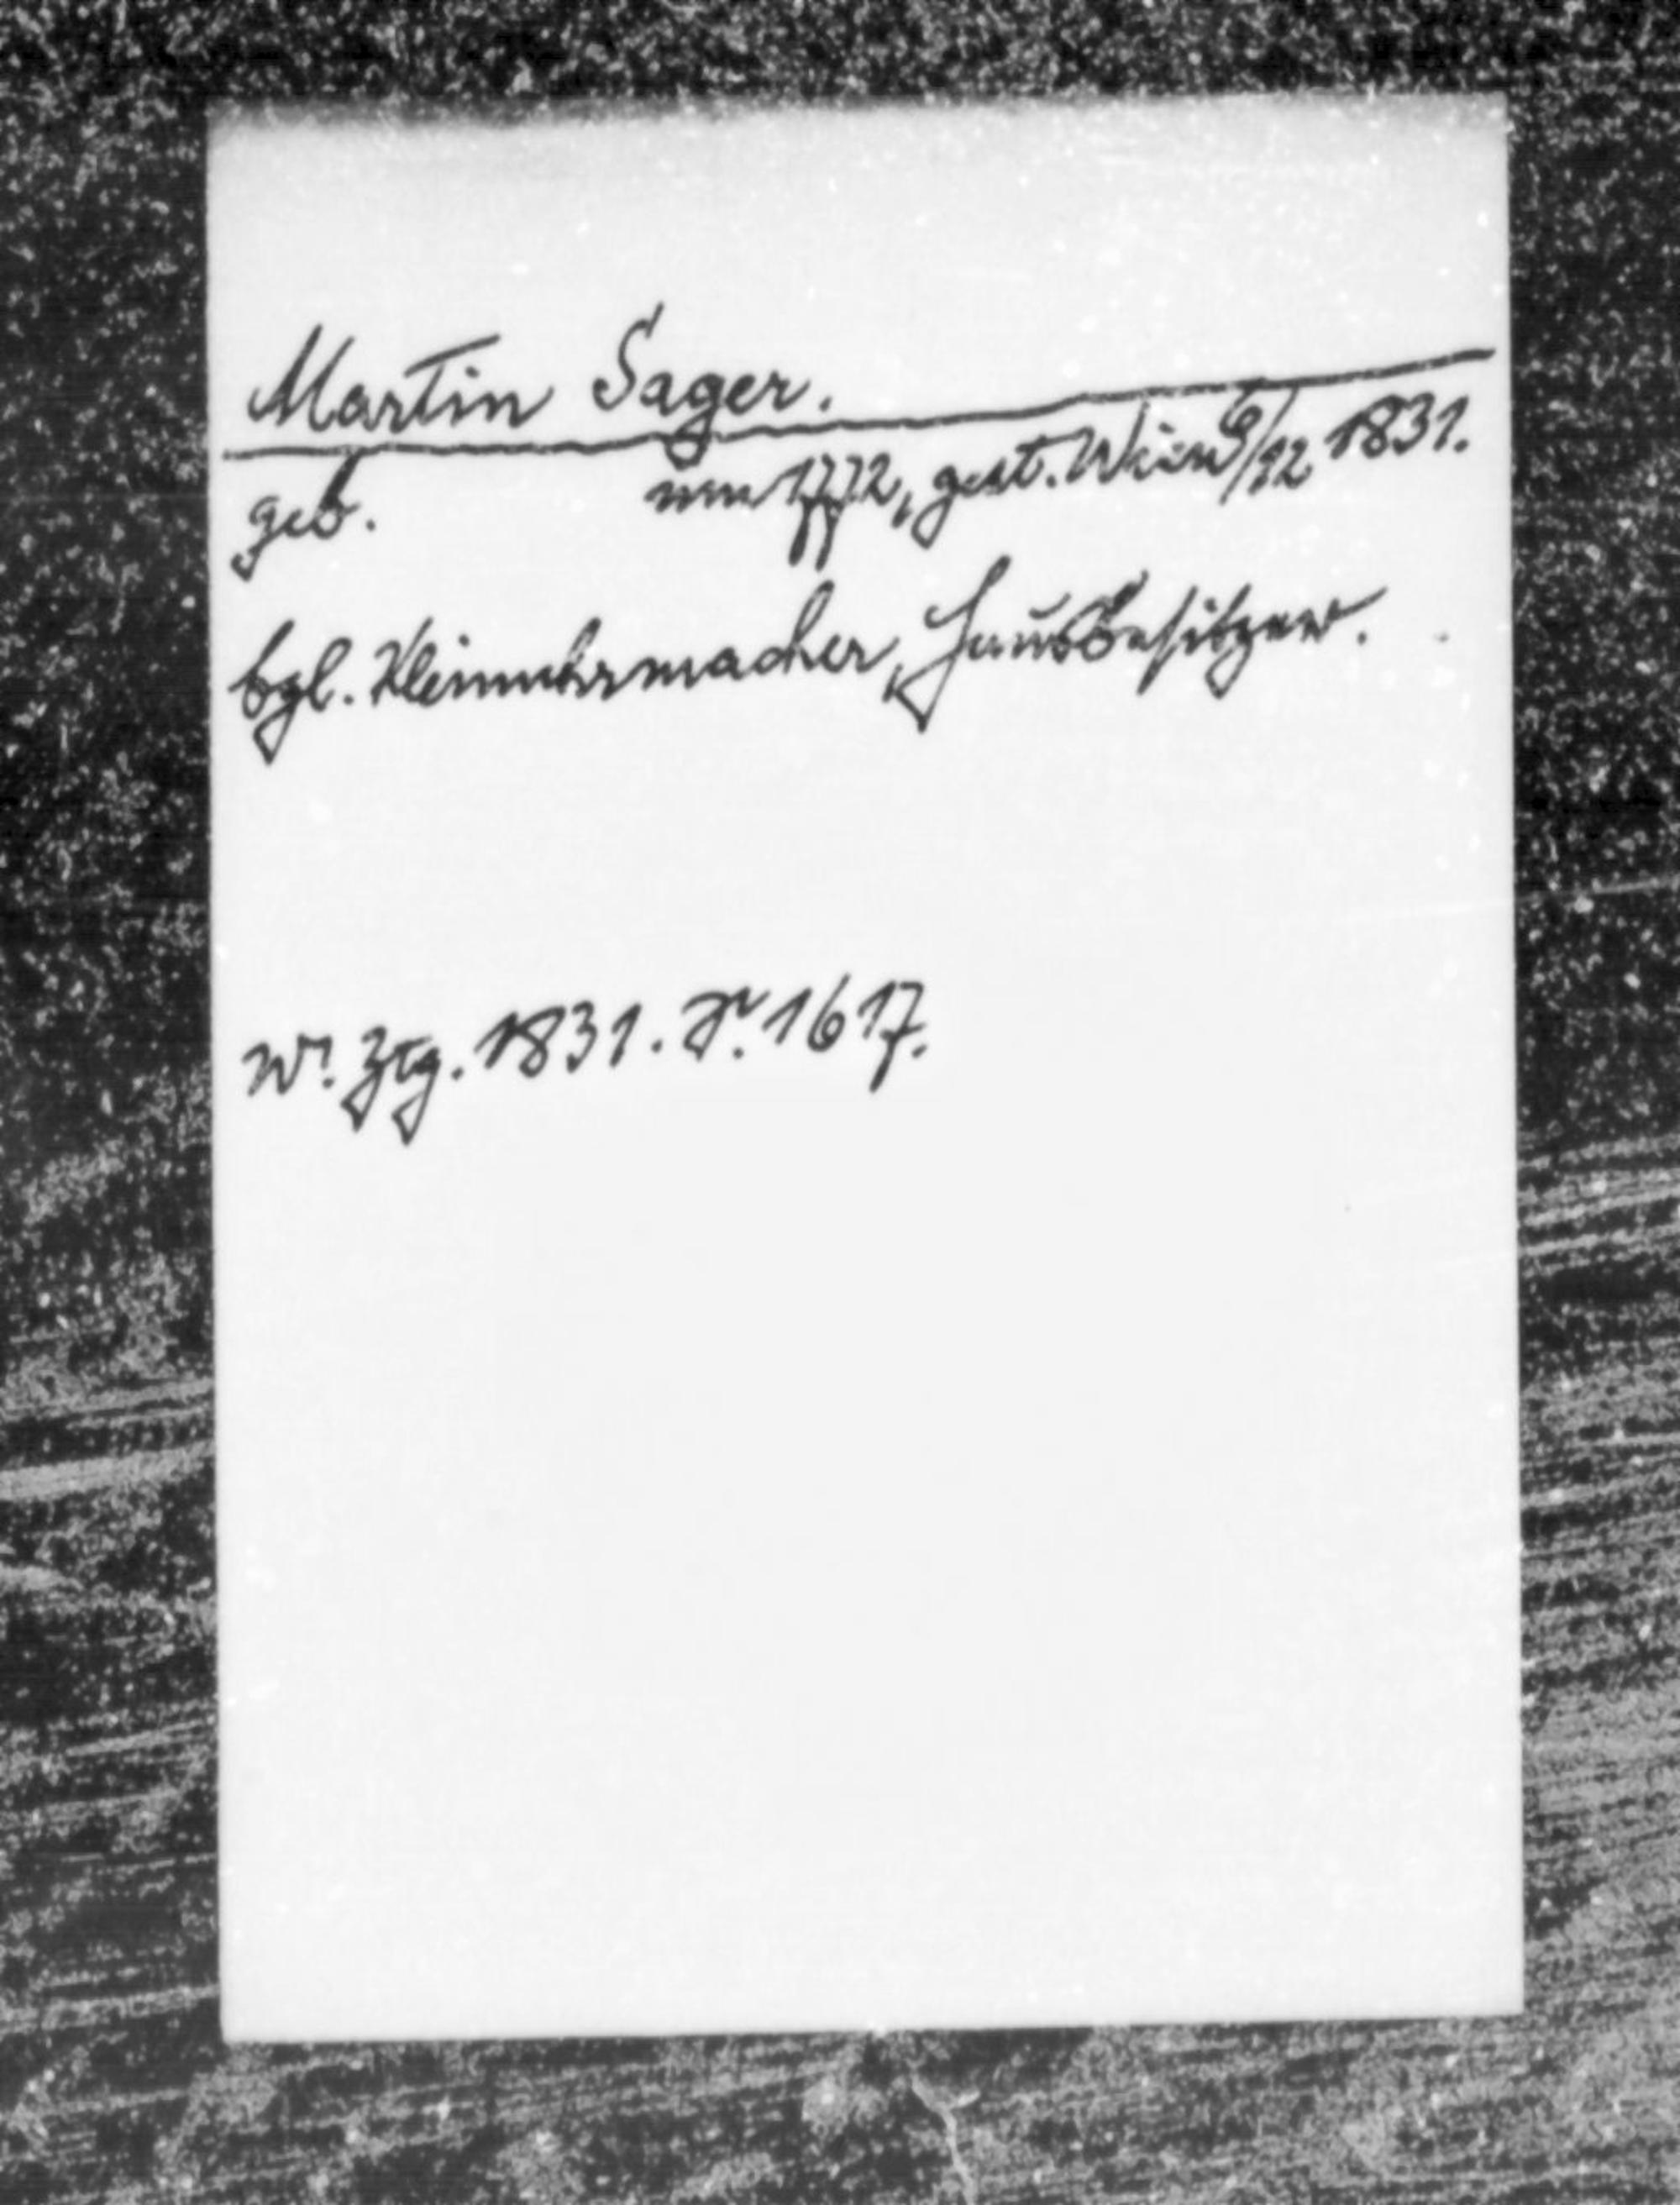 Martin Sager.
geb. um 1772, gest. Wien 9/12 1831.
bgl. Kleinuhrmacher, Hausbesitzer.
Wr. Ztg. 1831. S. 1617.